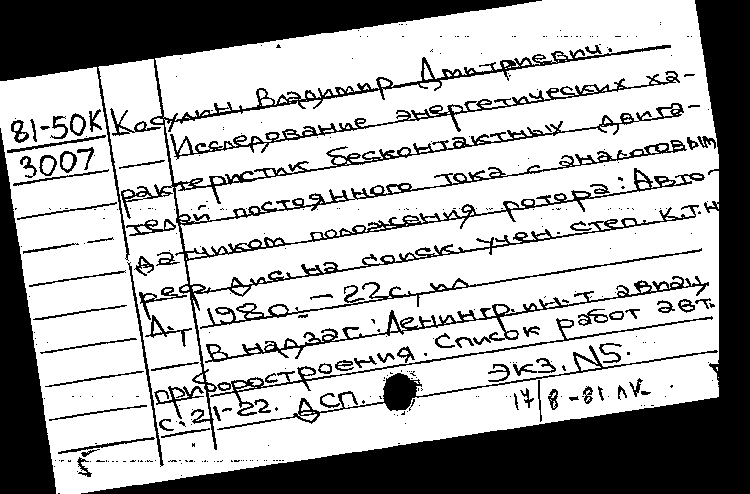 81-50К
3007
Косулин, Владимир Дмитриевич.
Исследование энергетических ха-
рактеристик бесконтактных двига-
телей постоянного тока с аналоговым
датчиком положения ротора: Авто-
реф. дис. на соиск. учен. степ. к.т.н
Л., 1980. - 22 с., ил
В надзаг.: Ленингр. ин-т авиац.
приборостроения. Список работ авт.
с. 21-22. ДСП.
Экз. N5.
17/8-81 лк.